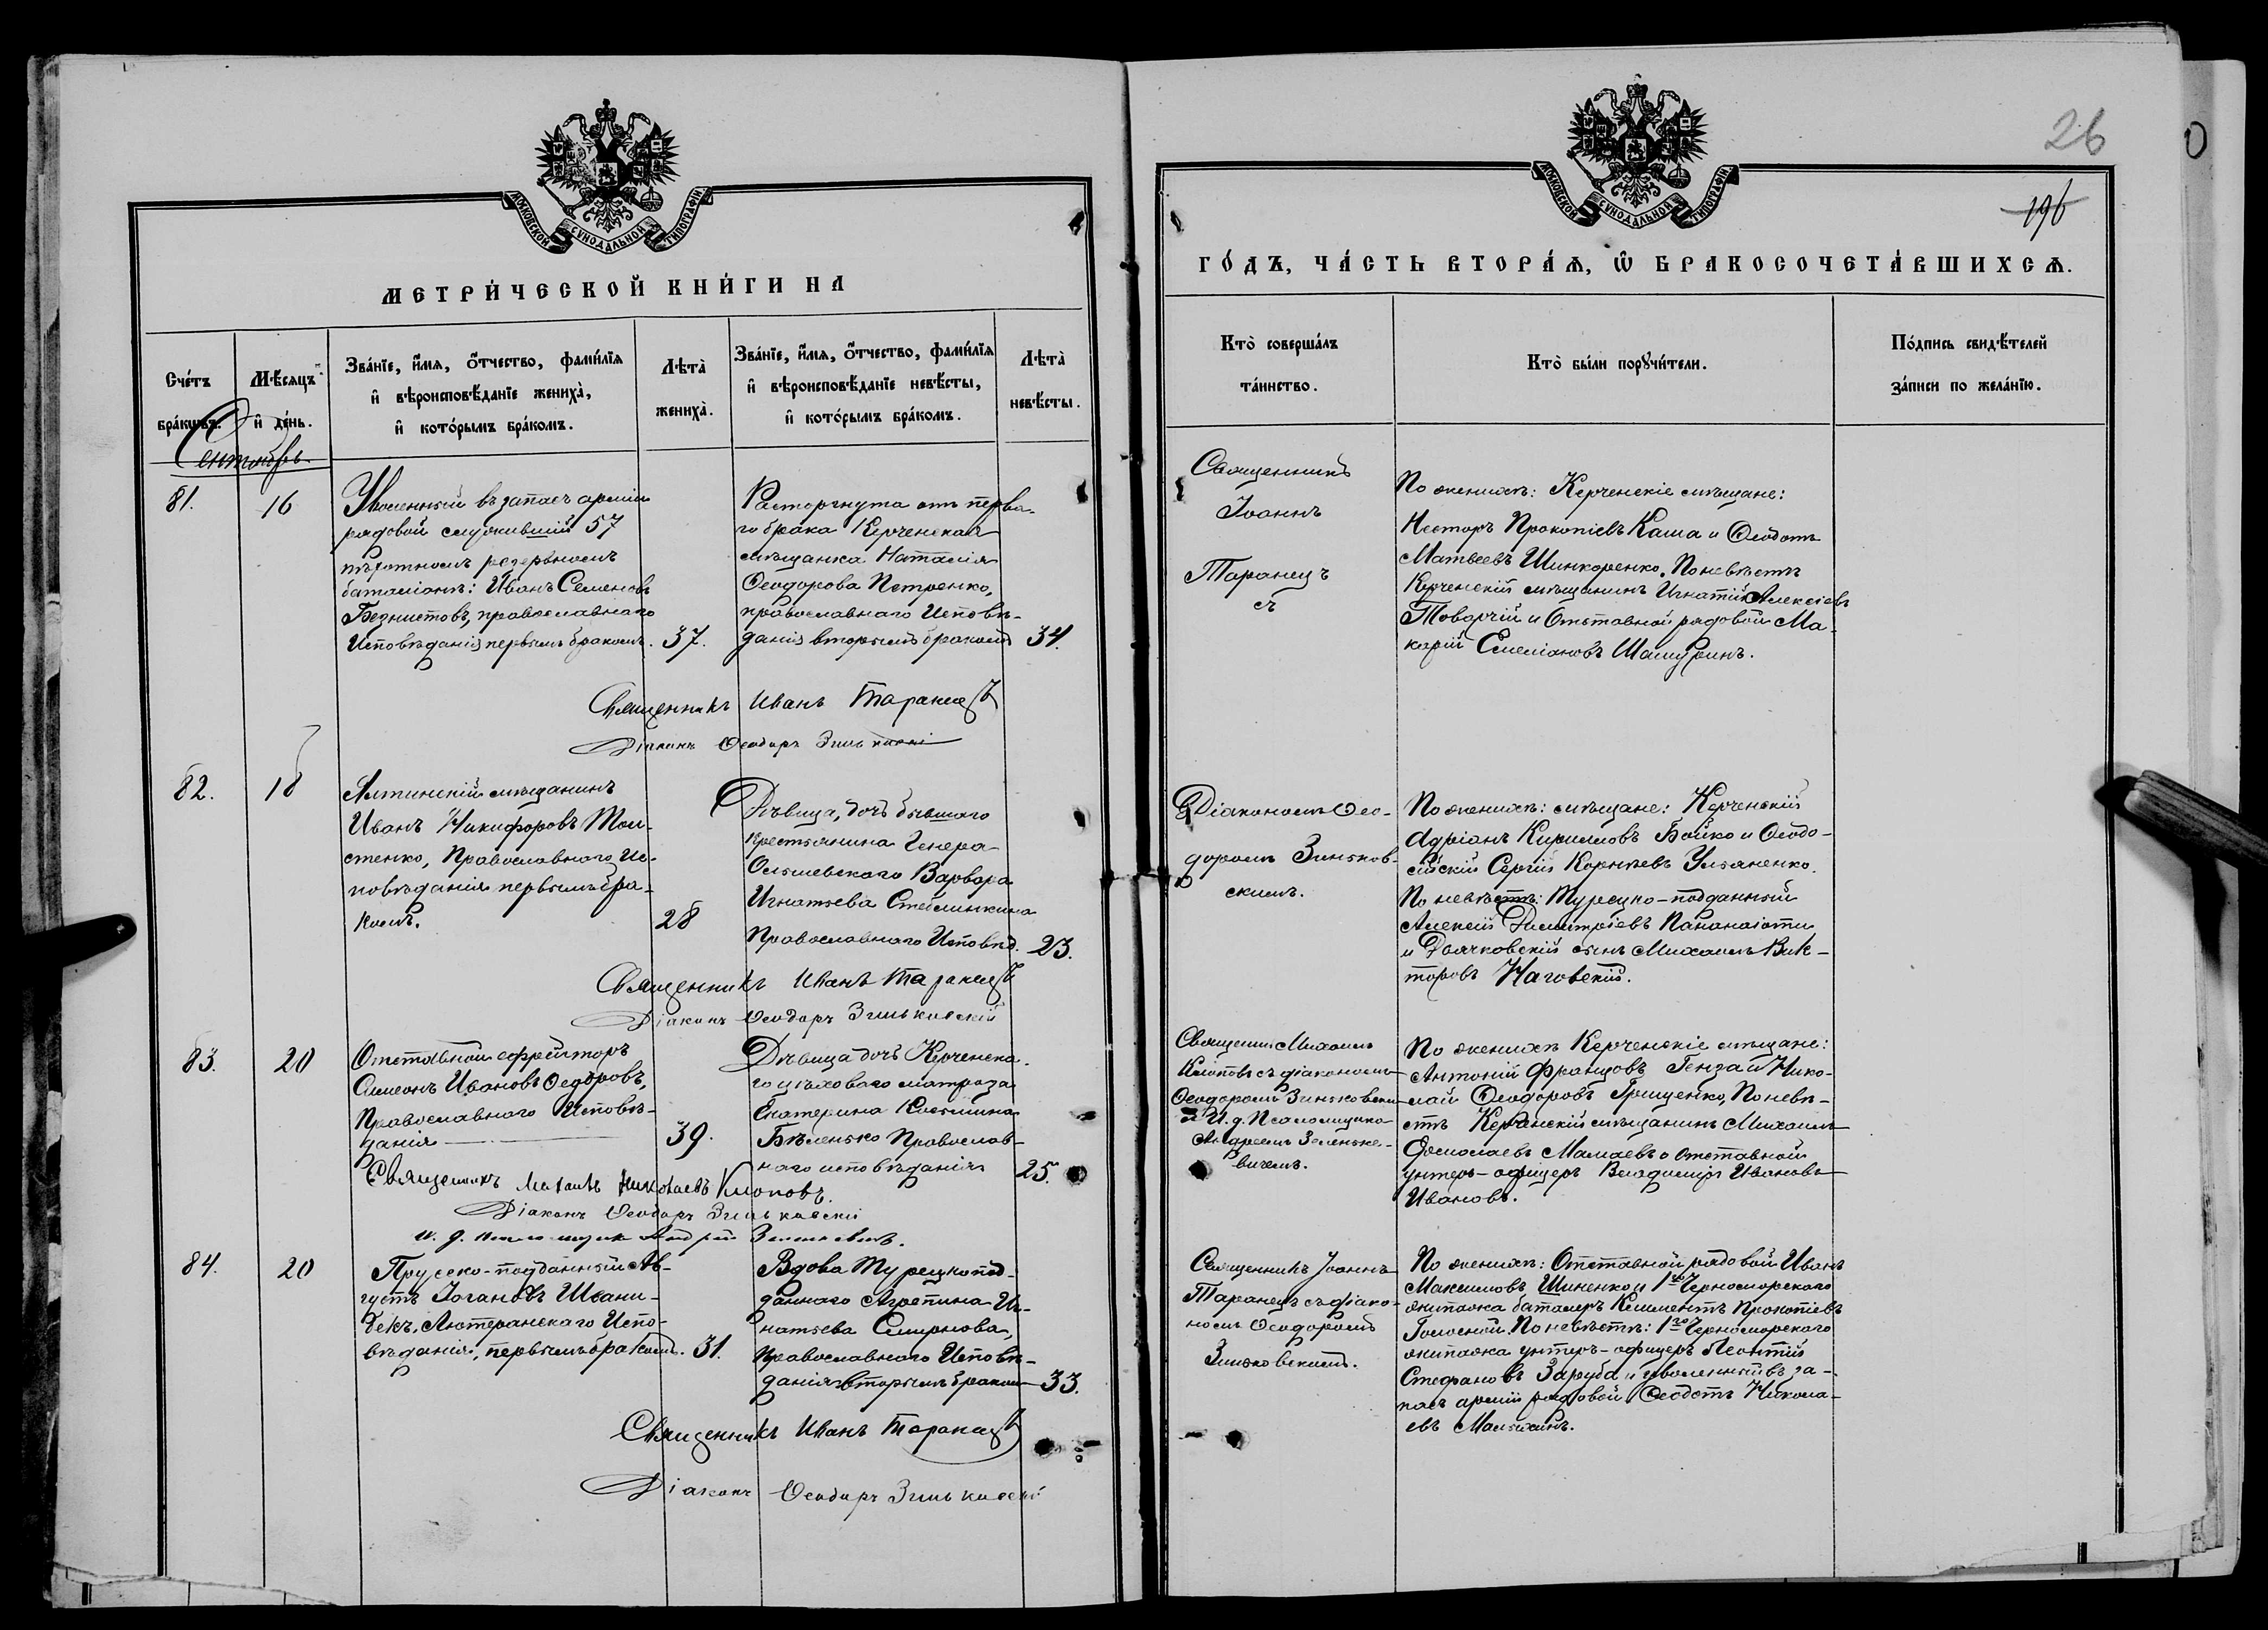 МОСКОВСКОЙ СѴНОДАЛЬНОЙ ТИПОГРАФІИ
МЕТРИ́ЧЕСКОЙ КНИ́ГИ НА
Сче́тъ бра́кωвъ.
Мѣ́сяцъ и҆ де́нь.
Зва́нїе, и҆́мя, ѻ҆́тчество, фами́лїя
и҆ вѣроисповѣ́данїе жениха̀,
и҆ кото́рымъ бра́комъ.
Лѣта̀ жениха̀.
Зва́нїе, и҆́мя, ѻ҆́тчество, фами́лїя
и҆ вѣроисповѣ́данїе невѣ́сты,
и҆ кото́рымъ бра́комъ.
Лѣта̀ невѣ́сты.
Сентябрь
81.
16
Уволенный въ запасъ арміи
рядовой служившій 57
пѣхотномъ резервномъ
баталіонѣ: Иванъ Семеновъ
православнаго
Исповѣданія первымъ бракомъ.
37.
Расторгнута отъ перва-
го брака Керченская
мѣщанка Наталія
Ѳеодорова Петренко,
православнаго Исповѣ-
данія вторымъ бракомъ
34.
Священникъ Иванъ Таранецъ
Діаконъ Ѳеодоръ Зиньковскі
82.
18
Ялтинскій мѣщанинъ
Иванъ Никифоровъ Тол-
стенко, Православнаго Ис-
повѣданія первымъ бра-
комъ.
28
Дѣвица, дочь бывшаго
крестьянина Генера
Варвара
Игнатьева
Православнаго Исповѣд.
23.
Священникъ Иванъ Таранецъ
Діаконъ Ѳеодоръ Зиньковскій
83.
20
Отставной ефрейторъ
Симеонъ Ивановъ Ѳедоровъ,
Православнаго Исповѣ-
данія
39.
Дѣвица дочь Керченска-
го цѣховаго матроза
Екатерина Косьмина
Бѣленько Православ-
наго исповѣданія
25.
Священникъ Михаилъ Николаевъ Клоповъ.
Діаконъ Ѳеодоръ Зиньковскій
и. д. псаломщика Андрей Зеленкевичъ.
84.
20
Прусско-подданный Ав-
густъ Іогановъ
Лютеранскаго Испо-
вѣданія, первымъ бракомъ.
31.
Вдова Турецкопод-
даннаго Агрепина Иг-
натьева Смирнова,
Православнаго Исповѣ-
данія вторымъ бракомъ
33.
Священникъ Иванъ Таранецъ
Діаконъ Ѳеодоръ Зиньковскій
26
196
МОСКОВСКОЙ СѴНОДАЛЬНОЙ ТИПОГРАФІИ
ГО́ДЪ, ЧА́СТЬ ВТОРА́Я, Ѽ БРАКОСОЧЕТА́ВШИХСЯ.
Кто̀ соверша́лъ
та́инство.
Кто̀ бы́ли порꙋчи́тели.
По́дпись свидѣ́телей
за́писи по жела́нїю.
Священникъ
Іоаннъ
Таранец
съ
По женихѣ: Керченскіе мѣщане:
Несторъ Прокопіевъ Каша и Ѳеодотъ
Матвеевъ Шинкоренко. По невѣстѣ
Керченскій мѣщанинъ Игнатій Алексіевъ
Товарчій и Отставной рядовой Ма-
карій Емеліановъ Шашуринъ.
Діакономъ Ѳео-
доромъ Зиньков-
скимъ.
По женихѣ: мѣщане: Керченскій
Адріанъ Кириловъ Бойко и Ѳеодо-
сійскій Сергій Корнѣевъ Ульяненко.
По невѣстѣ: Турецко-подданный
Алексій Димитріевъ Панаіоти
и Дьячковскій сынъ Михаилъ Вик-
торовъ Наговскій.
Священник Михаилъ
Клоповъ съ діакономъ
Ѳеодоромъ Зиньковским
и И. д. Псаломщика
Андреемъ Зеленке-
вичемъ.
По женихѣ Керченскіе мѣщане:
Антоній Францовъ Генза и Нико-
лай Ѳеодоровъ Грищенко, По невѣ-
стѣ Керченскій мѣщанинъ Михаилъ
Мамаевъ и отставной
унтеръ-офицеръ Владиміръ Ивановъ
Ивановъ.
Священникъ Іоаннъ
Таранецъ съ діако-
номъ Ѳеодоромъ
Зиньковскимъ.
По женихѣ: Отставной рядовой Иванъ
Максимовъ Шиненко и 1го Черноморскаго
экипажа баталеръ Климентъ Прокопіевъ
Голосной. По невѣстѣ: 1го Черноморскаго
экипажа унтеръ-офицеръ Леонтій
Стефановъ Заруба и уволенный въ за-
пасъ арміи рядовой Ѳеодотъ Никола-
евъ Малыхинъ.